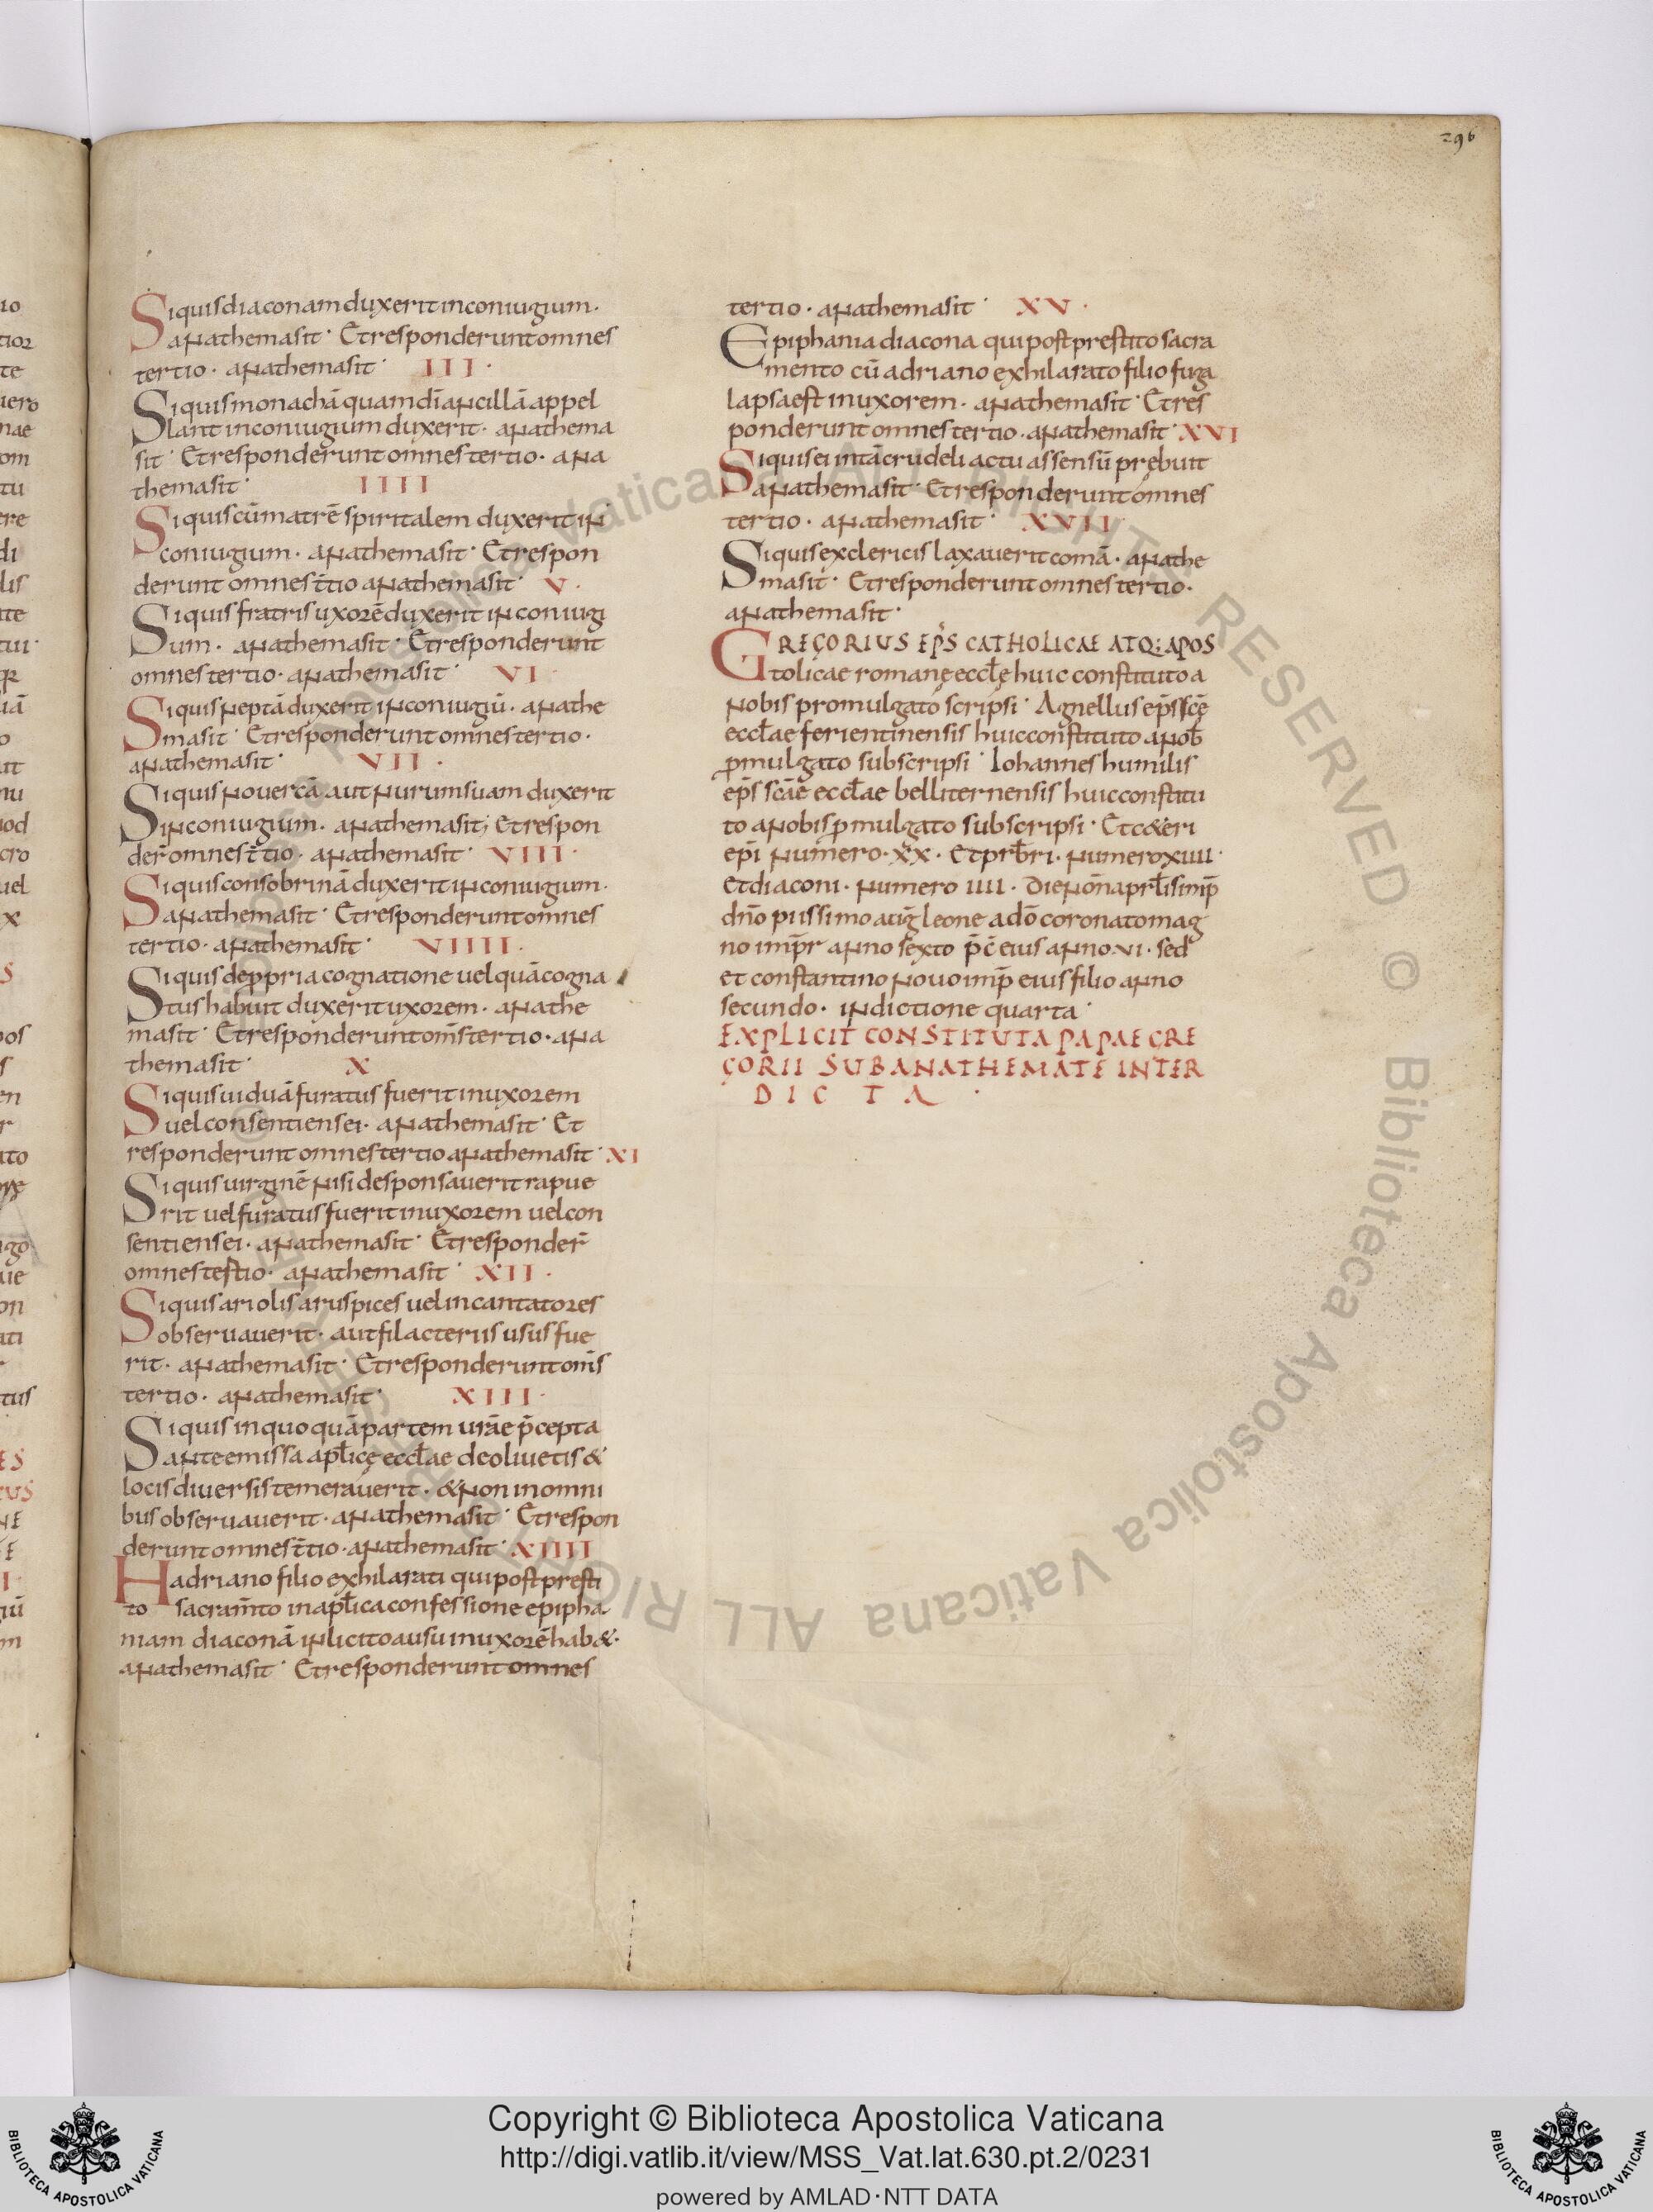 296
Siquis diaconam duxerit in coniugium·
anathema sit· Et responderunt omnes
tertio· anathema sit· III·
Siquis monachā quam dī ancillā appel
lant in coniugium duxerit· anathema
sit· Et responderunt omnes tertio· ana
thema sit· IIII
Siquis cūmatrē spiritalem duxerit in
coniugium· anathema sit· Et respon
derunt omnes t̄tio anathema sit· V·
Siquis fratris uxorē duxerit in coniugi
um· anathema sit· Et responderunt
omnes tertio· anathema sit· VI·
Siquis neptā duxerit in coniugiū· anathe
ma sit· Et responderunt omnes tertio·
anathema sit· VII·
Siquis nouercā aut nurum suam duxerit
in coniugium· anathema sit; Et respon
der̄ omnes t̄tio· anathema sit· VIII·
Siquis consobrinā duxerit in coniugium·
anathema sit· Et responderunt omnes
tertio· anathema sit· VIIII·
Siquis de ꝓpria cognatione uel quā cogna
tus habuit duxerit uxorem· anathe
ma sit· Et responderunt om̄s tertio· ana
thema sit· X
Siquis uiduā furatus fuerit in uxorem
uel consentiens ei· anathema sit· Et
responderunt omnes tertio anathema sit· XI
Siquis uirginē nisi desponsauerit rapue
rit uel furatus fuerit in uxorem uel con
sentiens ei· anathema sit· Et responder̄
omnes testio· anathema sit· XII·
Siquis ariolis aruspices uel incantatores
obseruauerit· aut filacteriis usus fue
rit· anathema sit· Et responderunt om̄s
tertio· anathema sit· XIII·
Siquis in quoquā partem urāe p̄cepta
ante emissa apl̄icę eccl̄ae de oliuetis &
locis diuersis temerauerit· & non in omni
bus obseruauerit· anathema sit· Et respon
derunt omnes t̄tio· anathema sit· XIIII
Hadriano filio exhilarati qui post presti
to sacram̄to in apl̄ica confessione epipha
niam diaconā inlicito ausu in uxorē hab&·
anathema sit· Et responderunt omnes
tertio· anathema sit· XV·
Epiphania diacona qui post prestito sacra
mento cū adriano exhilarato filio fuga
lapsa est in uxorem· anathema sit· Et res
ponderunt omnes tertio· anathema sit· XVI
Siquis ei in tā crudeli actu assensū prębuit
anathema sit· Et responderunt omnes
tertio· anathema sit· XVII·
Siquis ex clericis laxauerit comā· anathe
ma sit· Et responderunt omnes tertio·
anathema sit·
GREGORIUS EP̄S CATHOLICAE ATQ; APOS
tolicae romanę eccl̄ę huic constituto a
nobis promulgato scripsi· Agnellus ep̄s sc̄ę
eccl̄ae ferientinensis huic constituto a nob̄
ꝓmulgato subscripsi· Iohannes humilis
ep̄s scāe eccl̄ae belliternensis huic constitu
to a nobis ꝓmulgato subscripsi· Et c&eri
ep̄i numero· XX· Et prb̄ri· numero XIIII·
Et diaconi· numero IIII· Die nōn aprl̄is imp̄
dn̄o piissimo auḡ leone a dō coronato mag
no imp̄r anno sexto p̄c̄ eius anno· VI· sed
et constantino nouo imp̄ eius filio anno
secundo· indictione quarta·
EXPLICIT CONSTITUTA PAPAE GRE
GORII SUB ANATHEMATE INTER
DICTA·
Copyright © Biblioteca Apostolica Vaticana
http://digi.vatlib.it/view/MSS_Vat.lat.630.pt.2/0231
powered by AMLAD·NTT DATA
BIBLIOTECA APOSTOLICA VATICANA
BIBLIOTECA APOSTOLICA VATICANA
© Biblioteca Apostolica Vaticana ALL RIGHTS RESERVED © Biblioteca Apostolica Vaticana ALL RIGHTS RESERVED